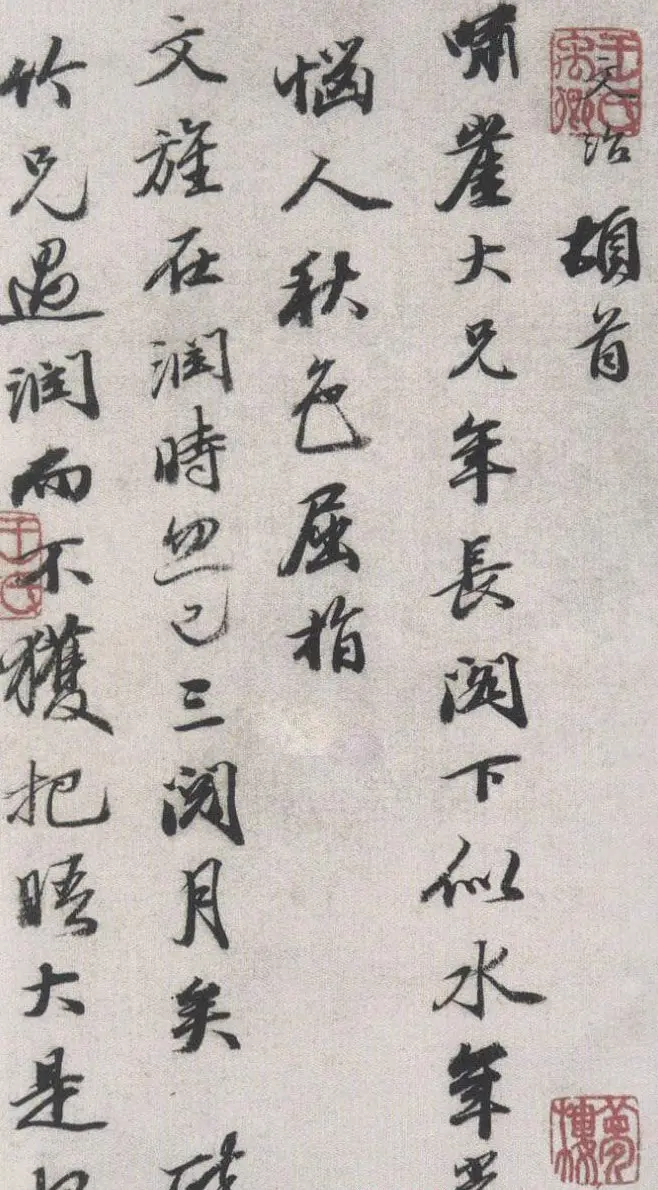 文治頓首
嘯崖大兄年長閣下似水年
惱人秋色屈指
文旌在潤時忽已三閱月矣
竹兄過潤而不獲把晤大是
王氏禹卿
夢樓